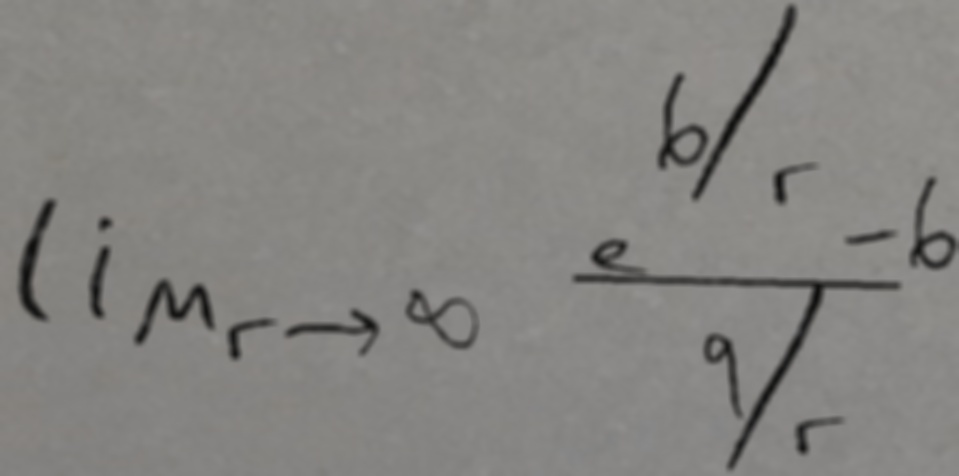 \lim_{r \to \infty} \frac{e^{b/r} - b}{9/r}